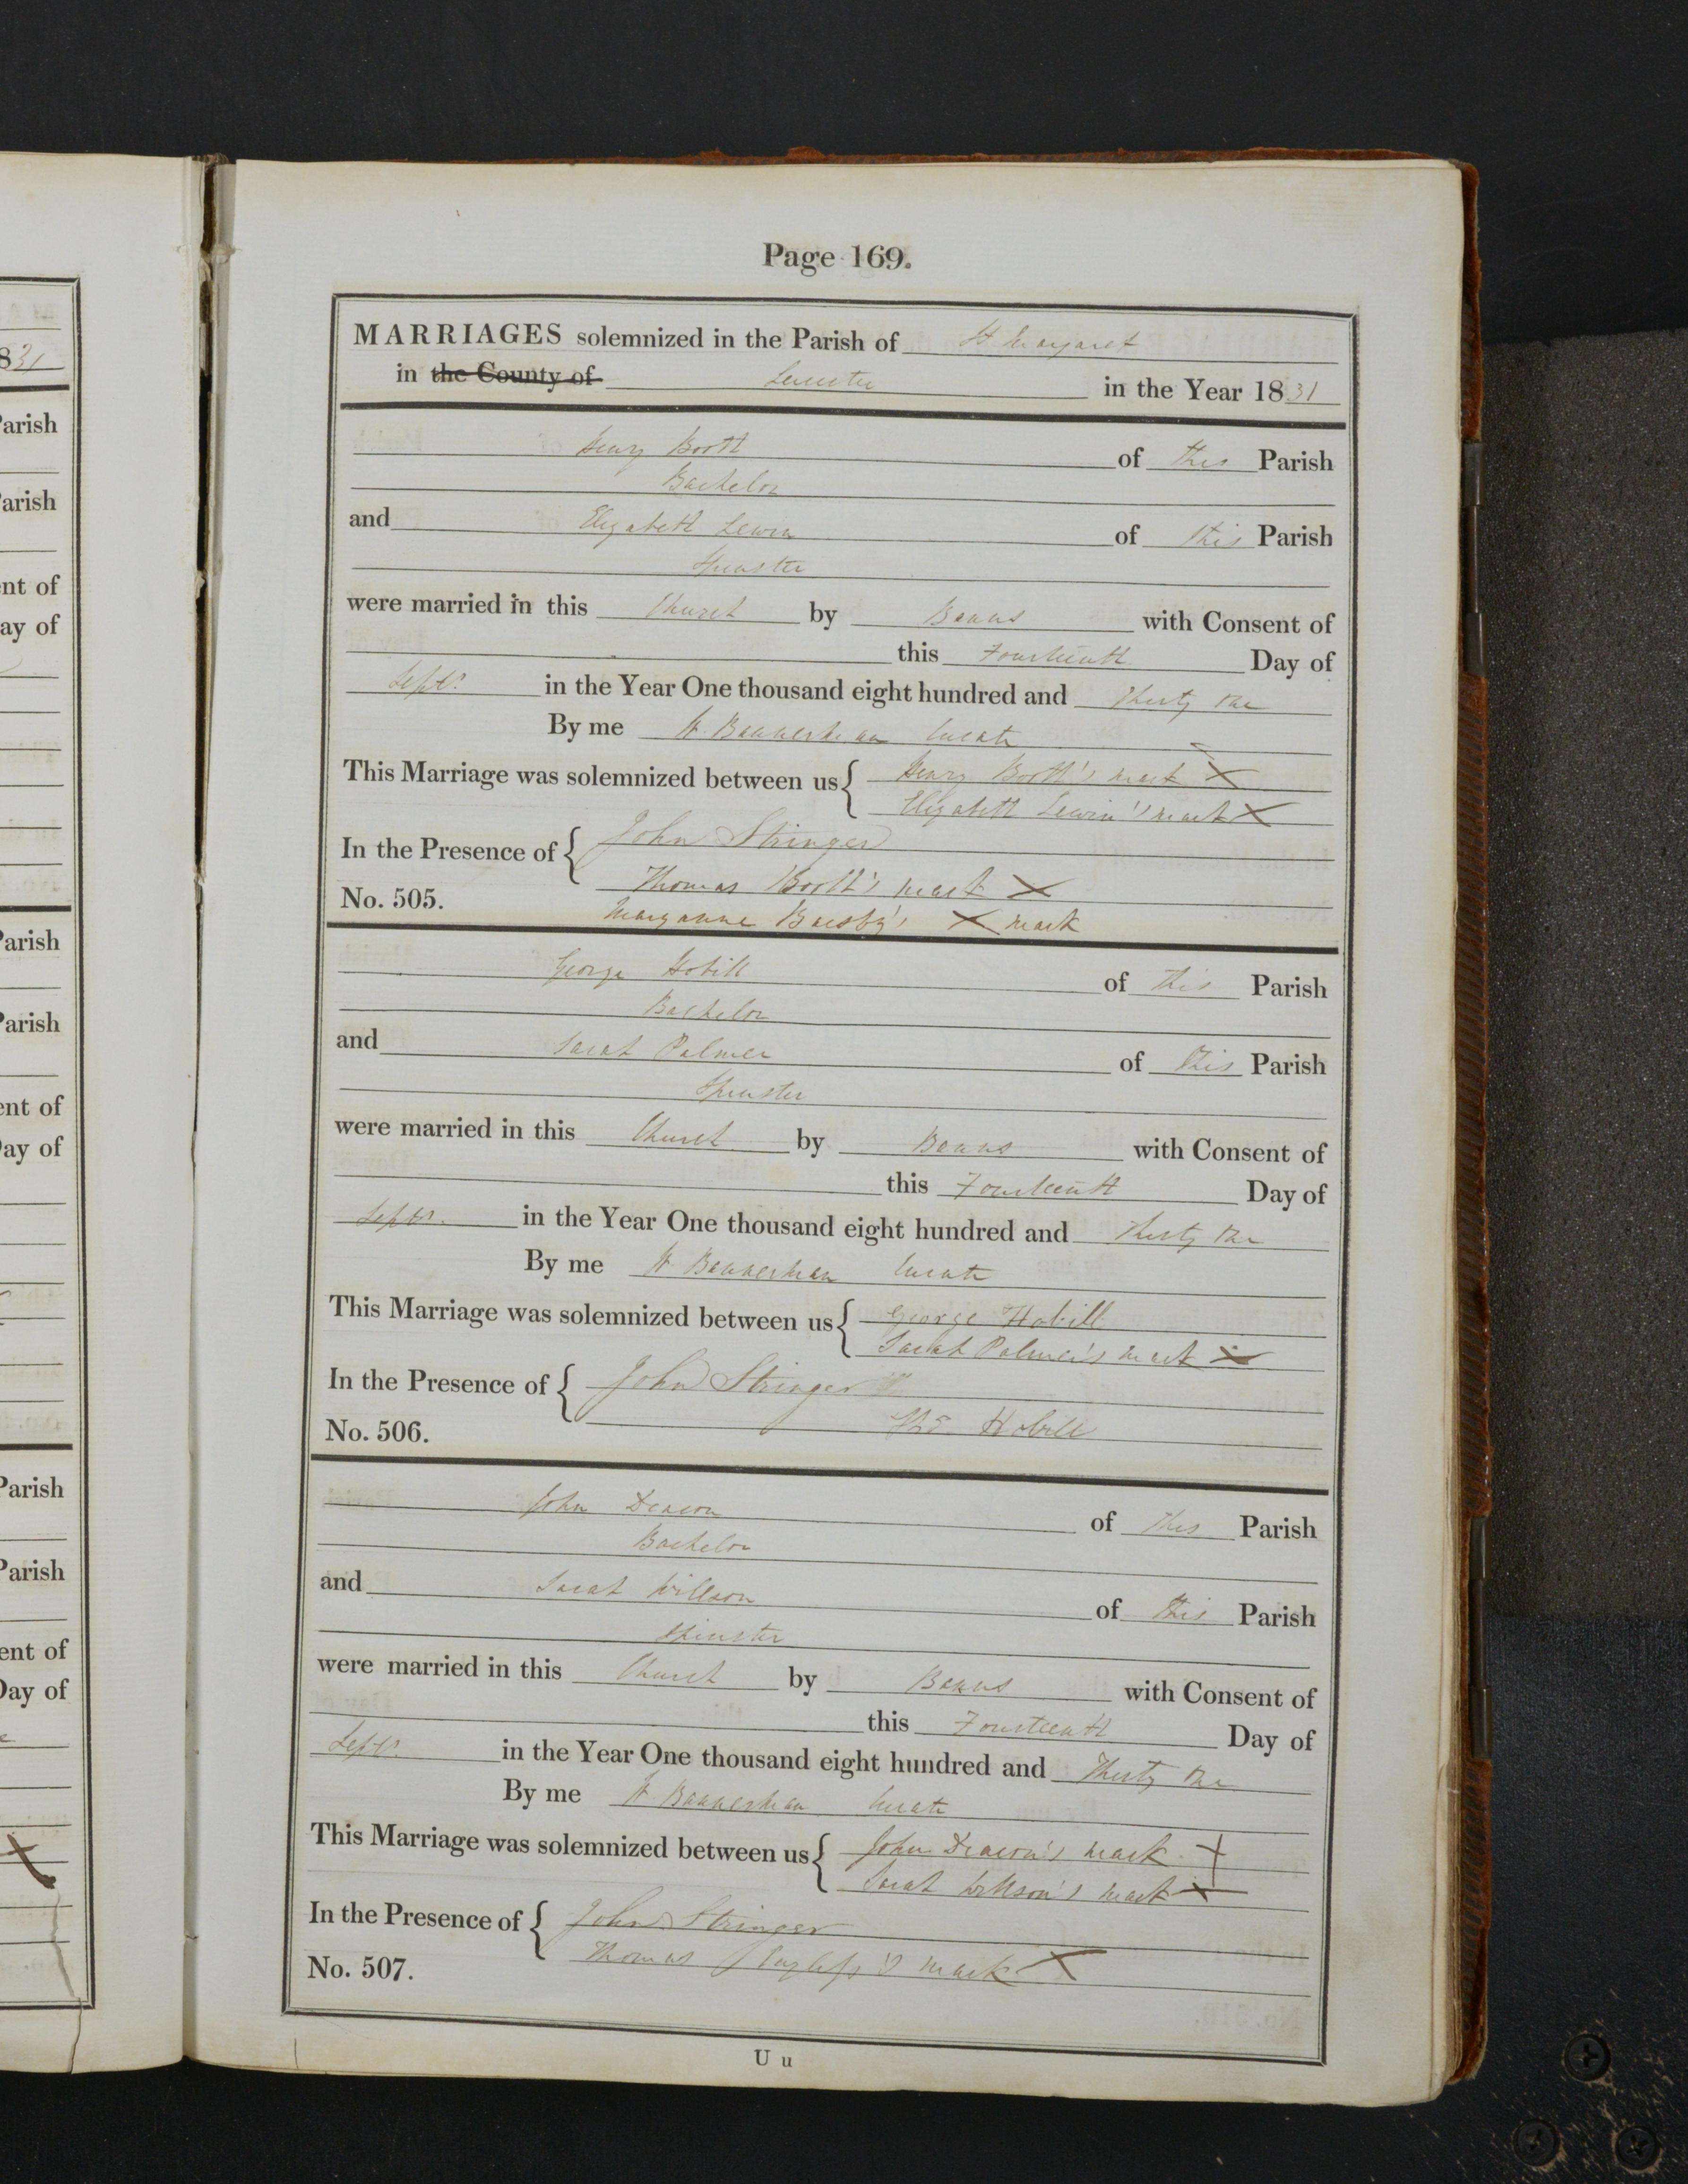 Page 169.
MARRIAGES solemnized in the Parish of St Margaret
in the County of Leicester in the Year 1831
Henry Booth of this Parish
Bachelor
and Elizabeth Lewin of this Parish
Spinster
were married in this Church by Banns with Consent of
this Fourteenth Day of
Septr. in the Year One thousand eight hundred and Thirty One
By me W. Bannerman Curate
This Marriage was solemnized between us { Henry Booth's mark X
Elizabeth Lewin's mark X
In the Presence of { John Stringer
Thomas Booth's mark X
No. 505.
Maryanne X mark
George Hobill of this Parish
Bachelor
and Sarah Palmer of this Parish
Spinster
were married in this Church by Banns with Consent of
this Fourteenth Day of
Septr. in the Year One thousand eight hundred and Thirty One
By me W Bannerman Curate
This Marriage was solemnized between us { George Hobill
Sarah Palmer's mark X
In the Presence of { John Stringer
Hobill
No. 506.
John Deacon of this Parish
Bachelor
and Sarah Willson of this Parish
Spinster
were married in this Church by Banns with Consent of
this Fourteenth Day of
Septr. in the Year One thousand eight hundred and Thirty One
By me W. Bannerman Curate
This Marriage was solemnized between us { John Deacon's mark X
Sarah Willson's mark X
In the Presence of { John Stringer
Thomas mark X
No. 507.
U u
831
Parish
Parish
ent of
ay of
Parish
Parish
ent of
Day of
Parish
Parish
ent of
Day of